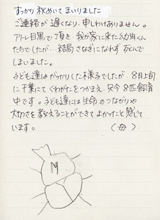 すっかり秋めいてまいりました
ご連絡が遅くなり、申しわけありません。
アトレ目黒で7頁を我が家に来た幼虫くん
たちでしたが 結局さなぎになれず死んで
しまいました。
子ども達はがっかりした様子でしたが 8月上旬
に千葉にてくわがたをつかまえ 只今8匹飼育
中です。子ども達には生命のつながりや
大切さを教えることができてよかったと感じて
います。
(母)